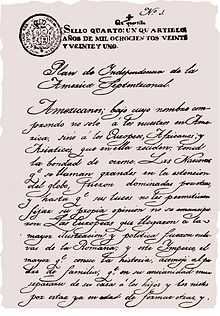 Sello quarto: un quartillo
años de mil ochocientos veinte
y veinte y uno.
Plan de Independencia de la
America Septentrional.
Americanos, bajo cuyo nombre com-
prendo no solo a los nacidos en Ame-
rica, sino a los Europeos, Africanos y
Asiaticos que en ella residen: tened
la bondad de oirme. Las Naciones
que se llaman grandes en la estencion
del globo, fueron dominadas por otras,
y hasta que sus luces no les permitieron
fijar su propia opinion no se emanci-
paron. Las Europeas que llegaron a la
mayor ilustracion y politica fueron es-
clavas de la Romana; y este Imperio, el
mayor que conoce la historia, asemejó al pa-
dre de familias, que en su ancianidad mira
separarse de su casa a los hijos y los nietos
por estar ya en edad de formar otras y